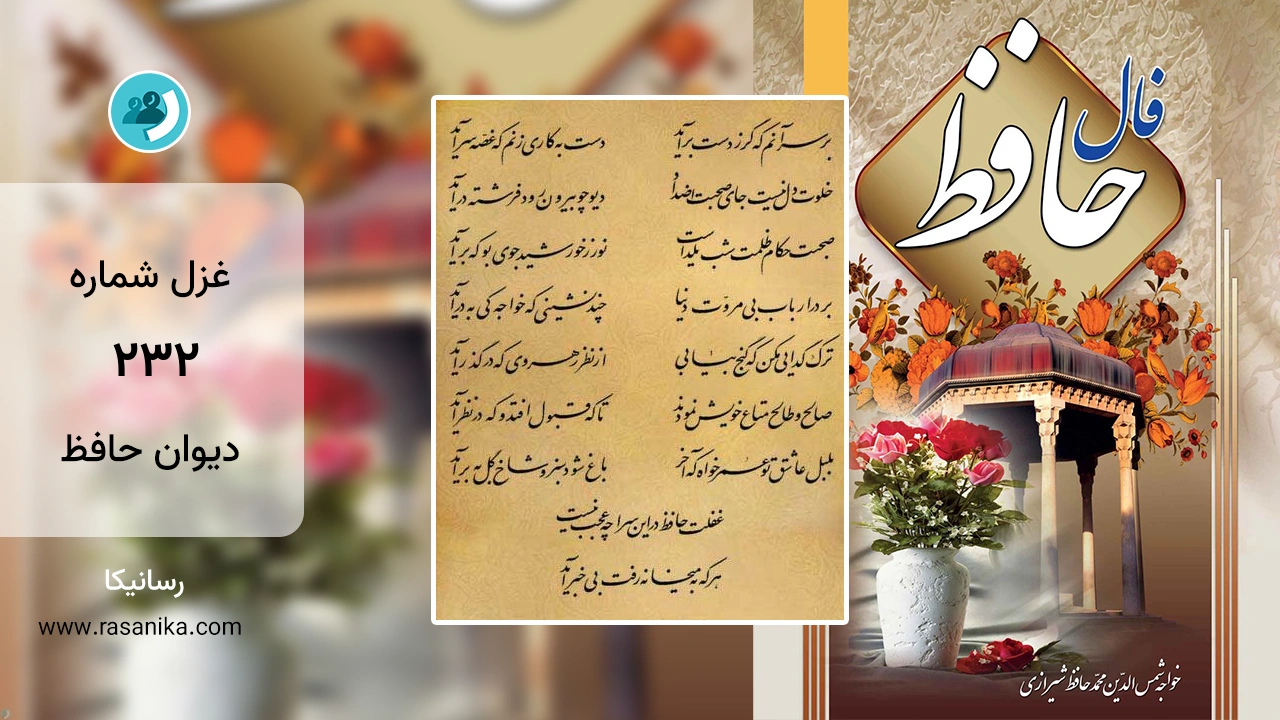 فال
حافظ
بر سر آنم که گر ز دست برآید دست به کاری زنم که غصه سر آید
خلوت دل نیست جای صحبت اضداد دیو چو بیرون رود فرشته درآید
صحبت حکام ظلمت شب یلداست نور ز خورشید جوی بو که برآید
بر در ارباب بی مروت دنیا چند نشینی که خواجه کی به درآید
ترک گدایی مکن که گنج بیابی از نظر رهروی که در گذر آید
صالح و طالح متاع خویش نمودند تا که قبول افتد و که در نظر آید
بلبل عاشق تو عمر خواه که آخر باغ شود سبز و شاخ گل به بر آید
غفلت حافظ در این سراچه عجب نیست
هر که به میخانه رفت بی خبر آید
غزل شماره
۲۳۲
دیوان حافظ
رسانیکا
www.rasanika.com
خواجه شمس الدّین محمّد حافظ شیرازی